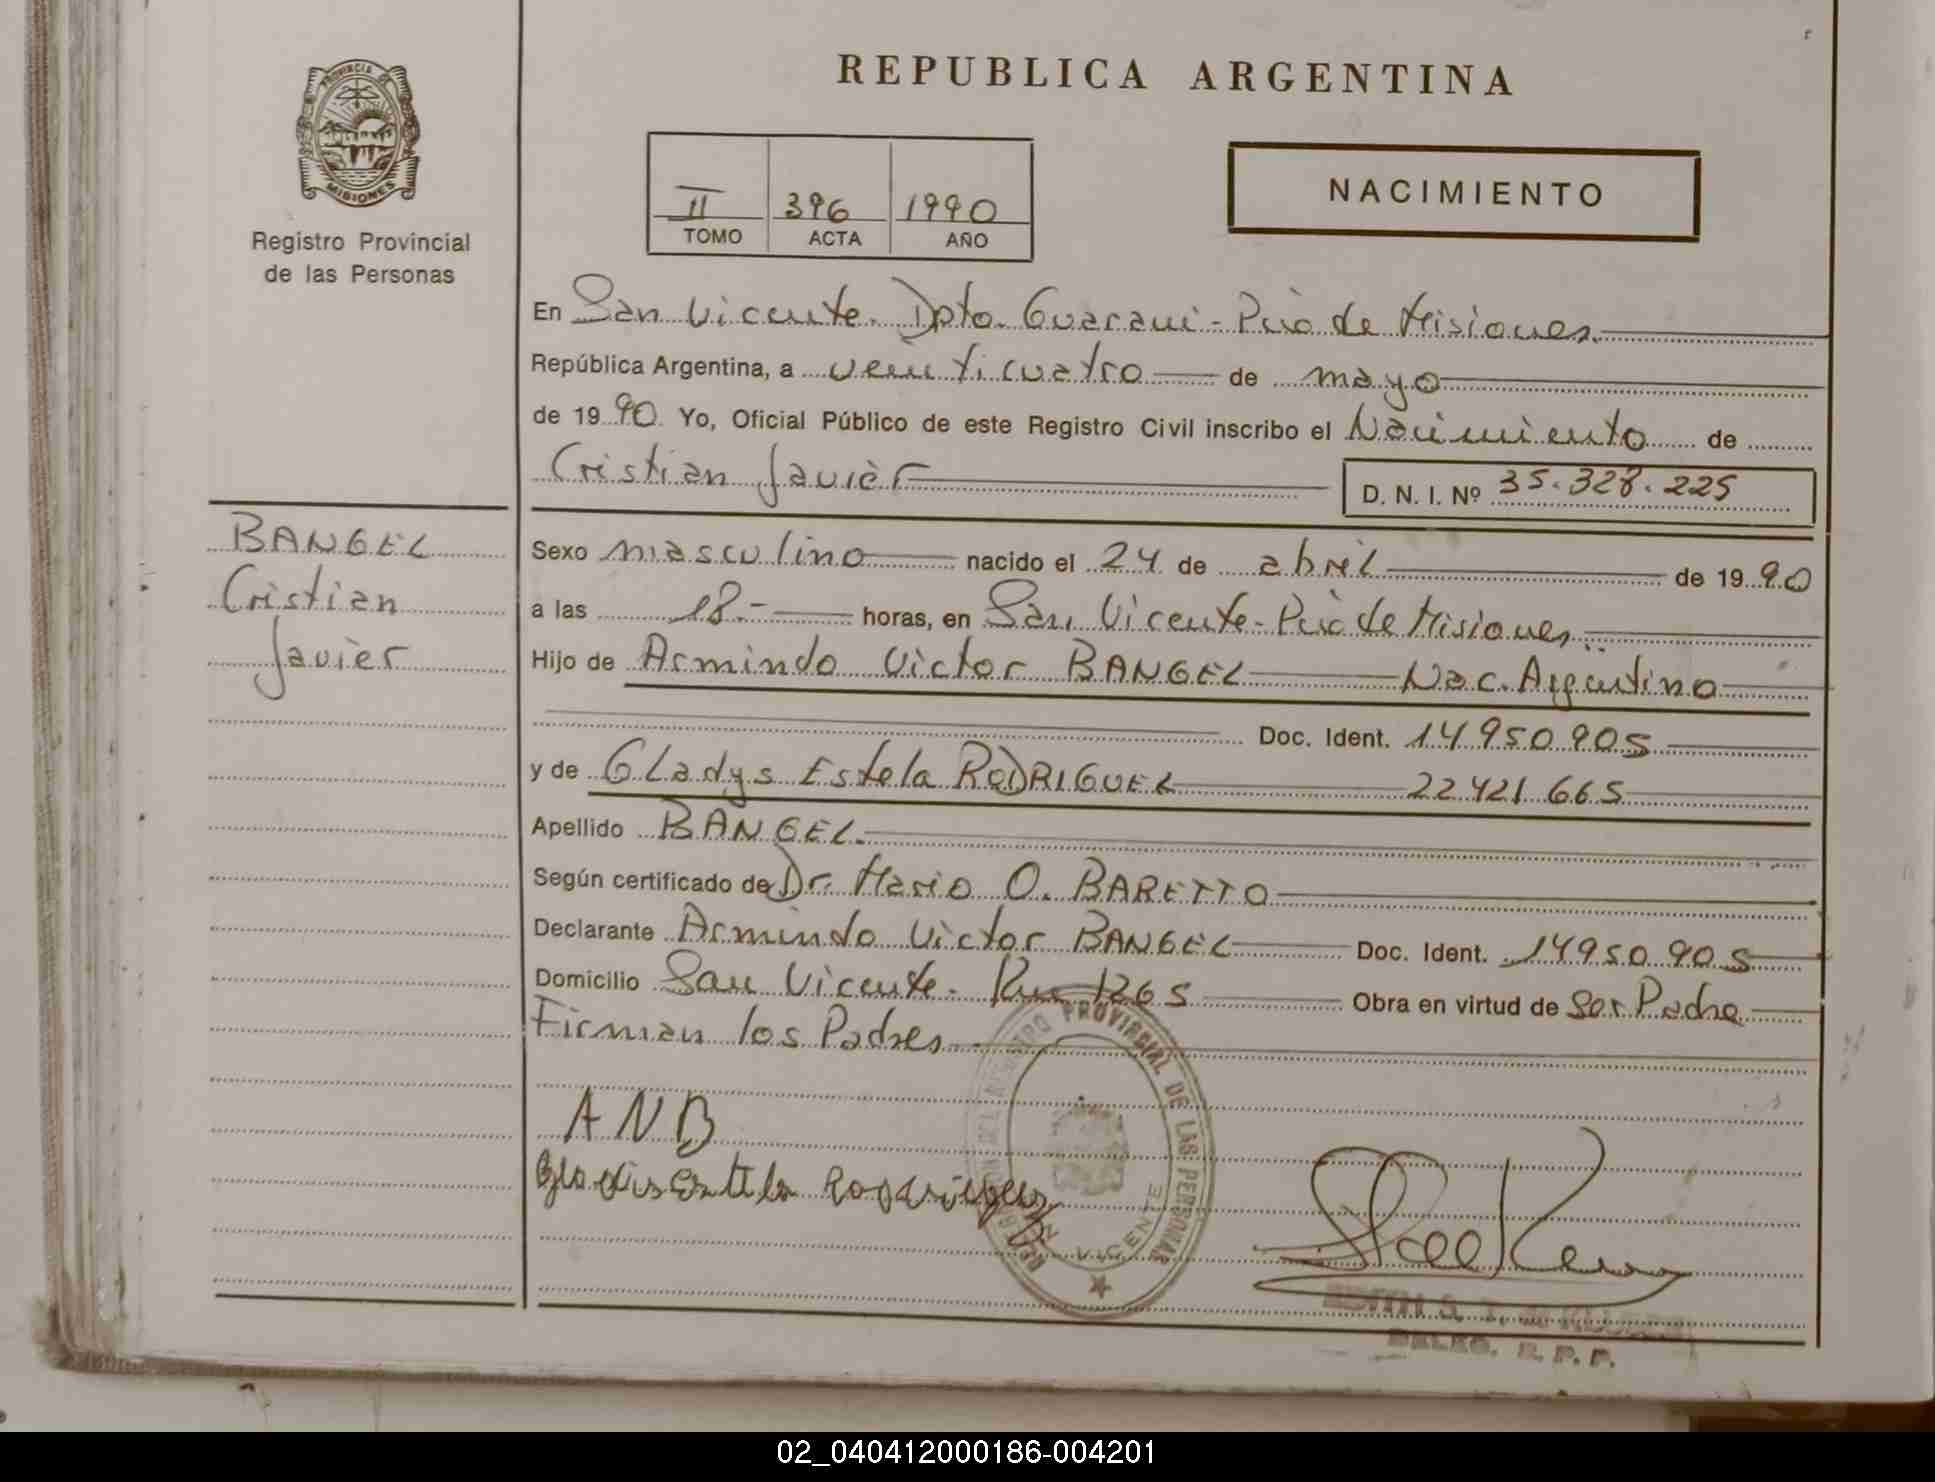 PROVINCIA DE
MISIONES
Registro Provincial
de las Personas
REPUBLICA ARGENTINA
II 396 1990
TOMO ACTA AÑO
NACIMIENTO
En San Vicente. Dpto. Guarani - Pcia de Misiones.
República Argentina, a veinticuatro de mayo
de 1990. Yo, Oficial Público de este Registro Civil inscribo el Nacimiento de
Cristian Javier D. N. I. Nº 35.328.225
BANGEL
Cristian
Javier
Sexo masculino nacido el 24 de abril de 1990
a las 18.- horas, en San Vicente - Pcia de Misiones.
Hijo de Armindo Victor BANGEL Nac. Argentino
Doc. Ident. 14950905
y de GLadys Estela RODRIGUEZ 22421665
Apellido BANGEL.
Según certificado de Dr. Mario O. BARETTO
Declarante Armindo Victor BANGEL Doc. Ident. 14950905
Domicilio San Vicente. Km 1265 Obra en virtud de Ser Padre
Firman los Padres
PROVINCIAL DE LAS PERSONAS
VICENTE
A N B
EDITH
R. P. P.
02_040412000186-004201